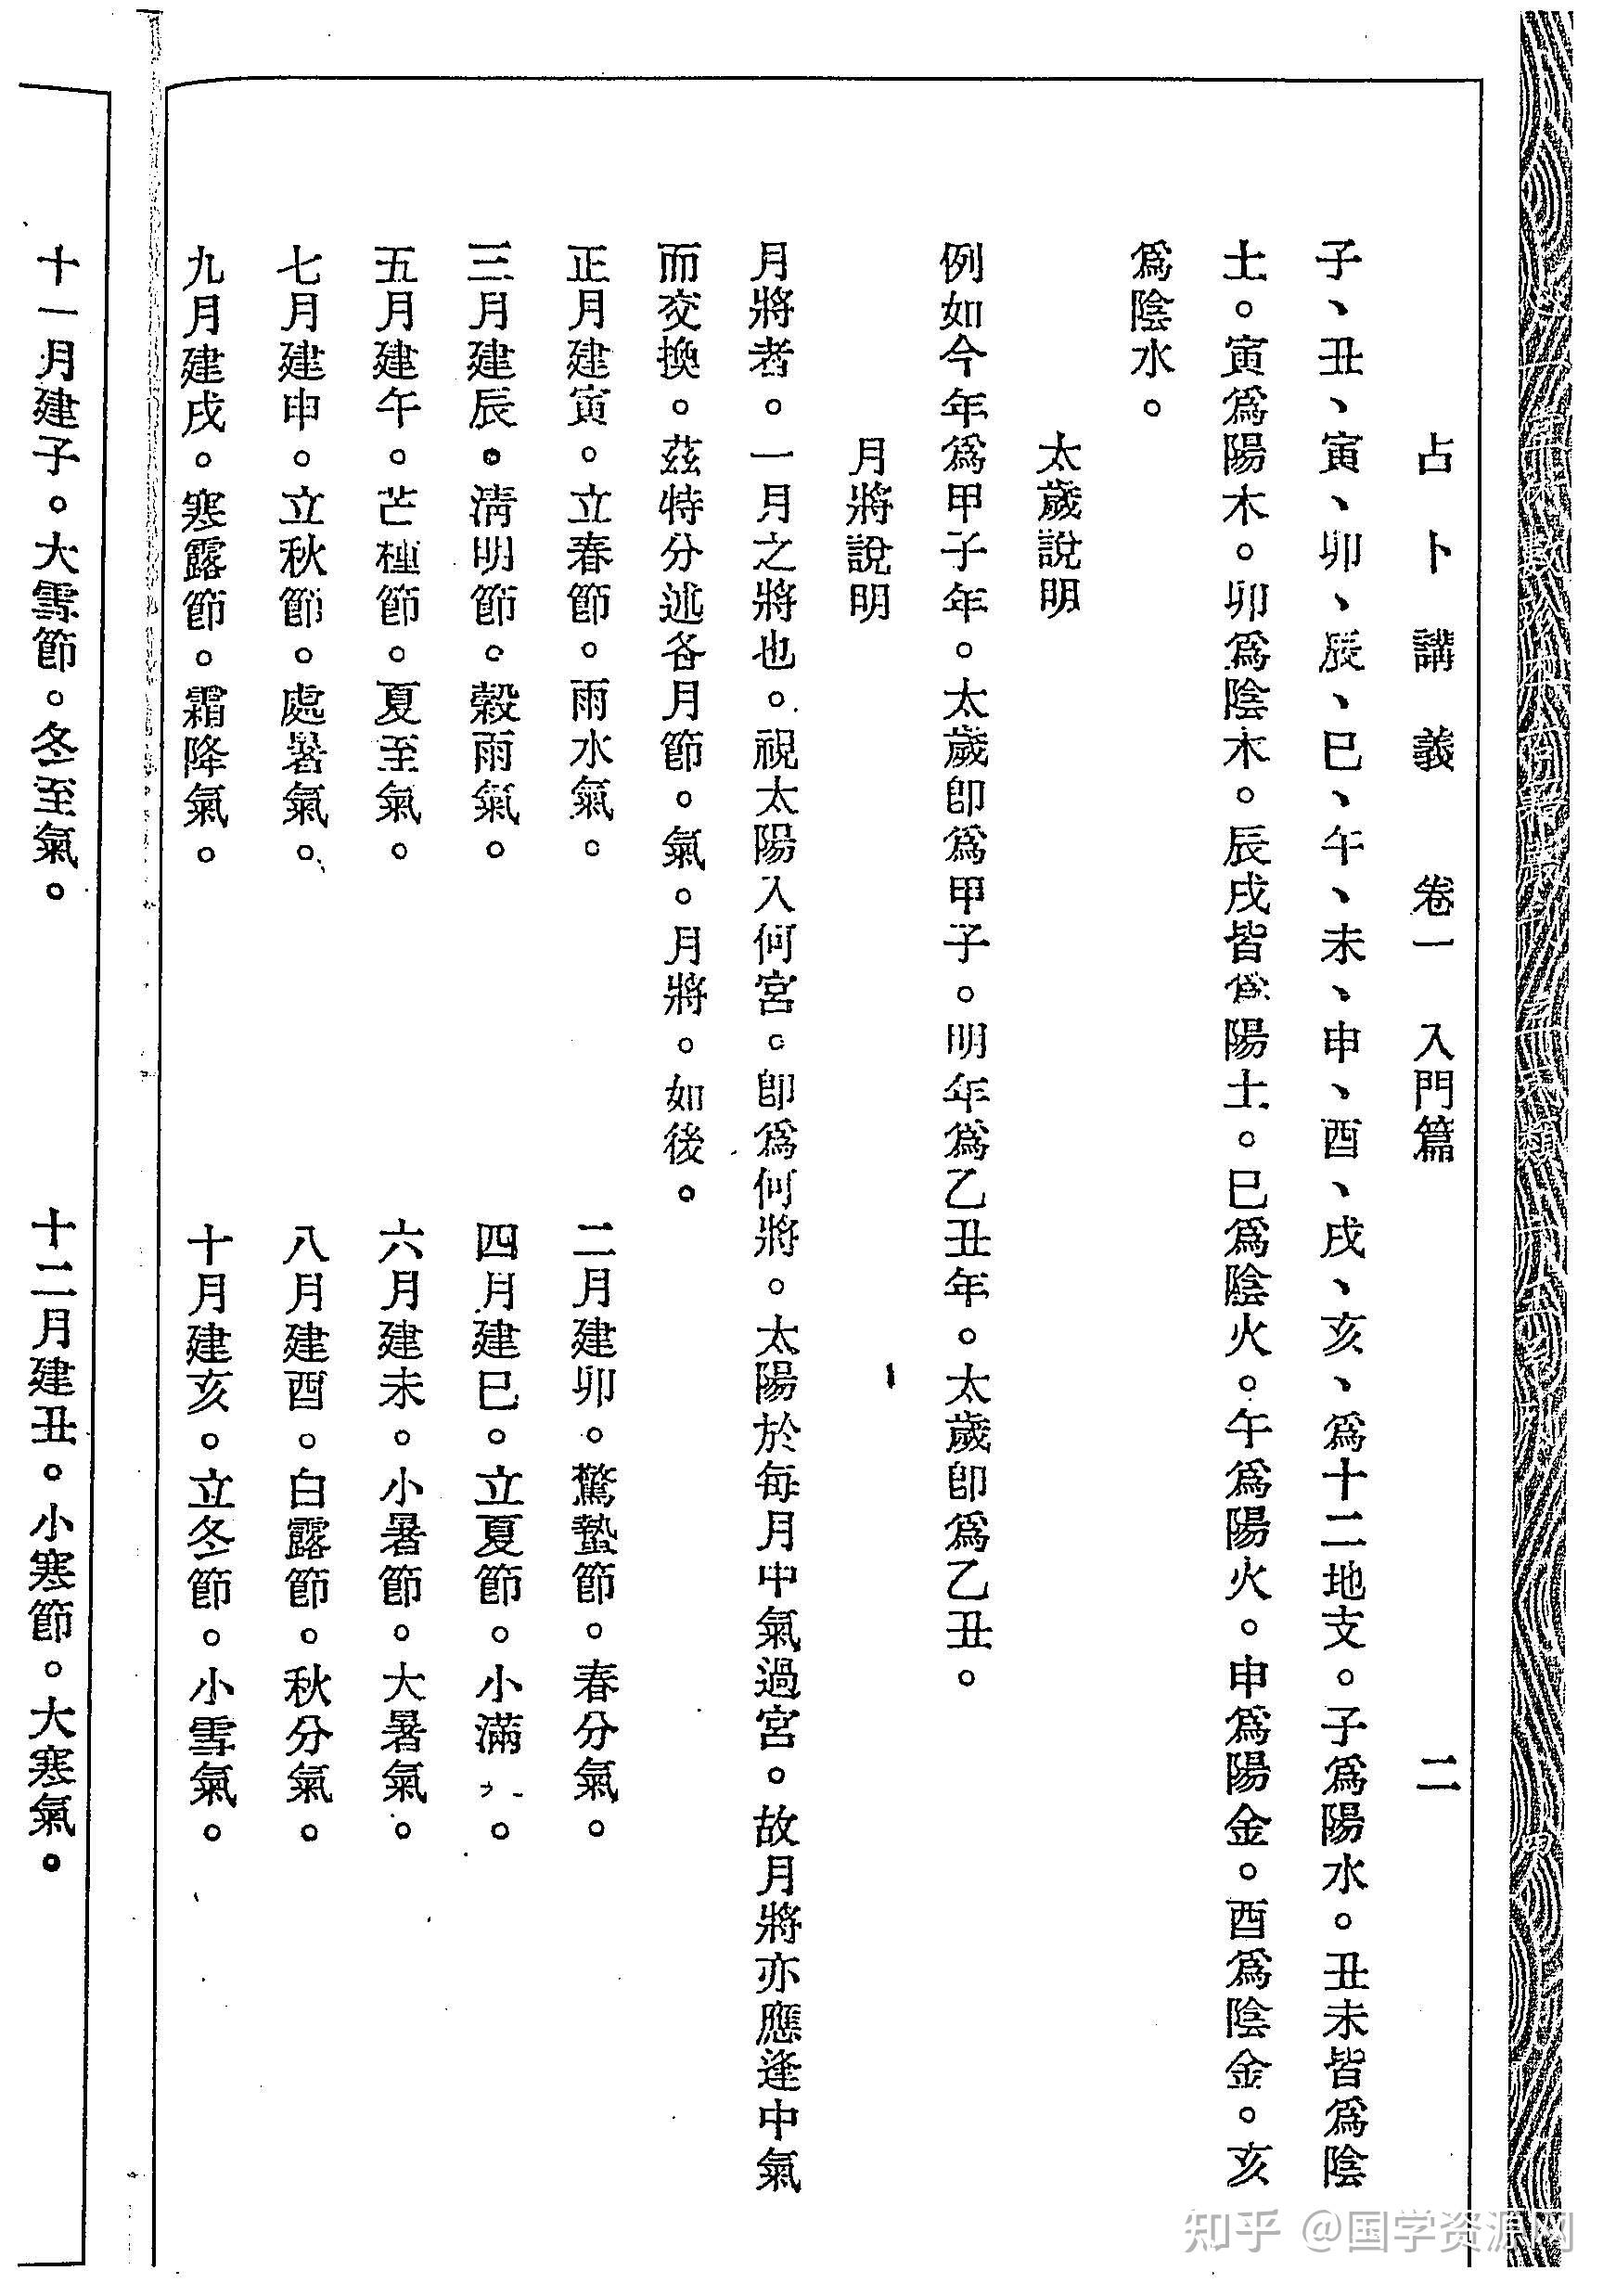 占卜講義　卷一　入門篇　二
子、丑、寅、卯、辰、巳、午、未、申、酉、戌、亥、爲十二地支。子爲陽水。丑未皆爲陰
土。寅爲陽木。卯爲陰木。辰戌皆爲陽土。巳爲陰火。午爲陽火。申爲陽金。酉爲陰金。亥
爲陰水。
太歲說明
例如今年爲甲子年。太歲卽爲甲子。明年爲乙丑年。太歲卽爲乙丑。
月將說明
月將者。一月之將也。視太陽入何宮。卽爲何將。太陽於每月中氣過宮。故月將亦應逢中氣
而交換。茲特分述各月節。氣。月將。如後。
正月建寅。立春節。雨水氣。　二月建卯。驚蟄節。春分氣。
三月建辰。清明節。穀雨氣。　四月建巳。立夏節。小滿。
五月建午。芒種節。夏至氣。　六月建未。小暑節。大暑氣。
七月建申。立秋節。處暑氣。　八月建酉。白露節。秋分氣。
九月建戌。寒露節。霜降氣。　十月建亥。立冬節。小雪氣。
十一月建子。大雪節。冬至氣。　十二月建丑。小寒節。大寒氣。
知乎 @国学资源网